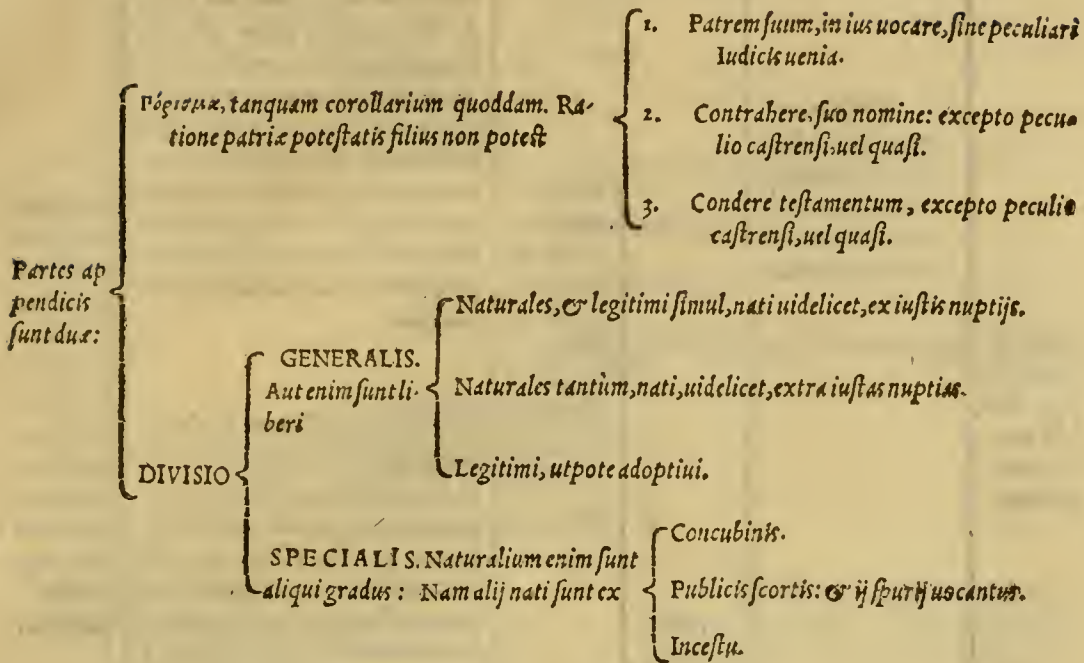 Partes ap
pendicis
sunt duæ:
Πόρισμα, tanquam corollarium quoddam. Ra-
tione patriæ potestatis filius non potest
1. Patrem suum, in ius uocare, sine peculiari
Iudicis uenia.
2. Contrahere, suo nomine: excepto pecu-
lio castrensi, uel quasi.
3. Condere testamentum, excepto peculio
castrensi, uel quasi.
DIVISIO
GENERALIS.
Aut enim sunt li-
beri
Naturales, & legitimi simul, nati uidelicet, ex iustis nuptijs.
Naturales tantùm, nati, uidelicet, extra iustas nuptias.
Legitimi, utpote adoptiui.
SPECIALIS. Naturalium enim sunt
aliqui gradus: Nam alij nati sunt ex
Concubinis.
Publicis scortis: & ij spurij uocantur.
Incestu.